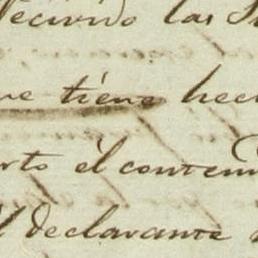 recivido las
tiene hec
rto el conten
declarante